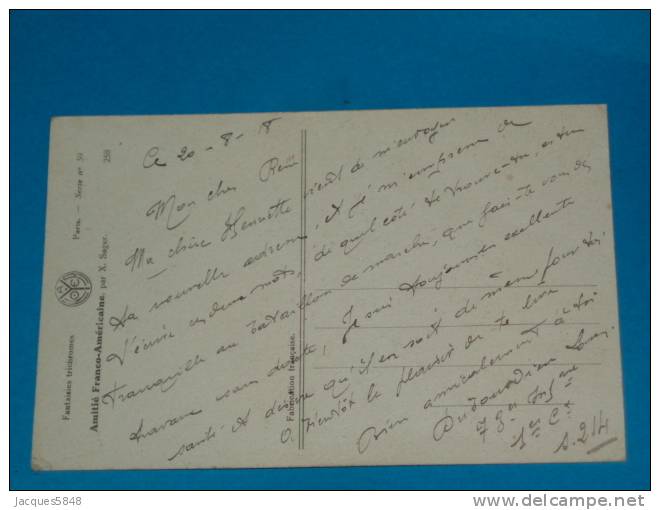 Ce 20 - 8 - 18
Mon cher René
Ma chère Henriette vient de m'envoyer
ta nouvelle adresse, et je m'empresse de
t'écrire ces deux mots, de quel côté te trouve-tu, es-tu
tranquille au bataillon de marche, que fais-tu
travaux sans doute, je suis toujours en excellente
santé et désire qu'il en soit de même pour toi.
À bientôt le plaisir de te lire
Bien amicalement à toi
1ère Cie
S. 214
Fantaisies trichromes
Amitié Franco-Américaine, par X. Sager.
Paris. — Série n° 59
258
Fabrication française.
Jacques5848
delcampe.net